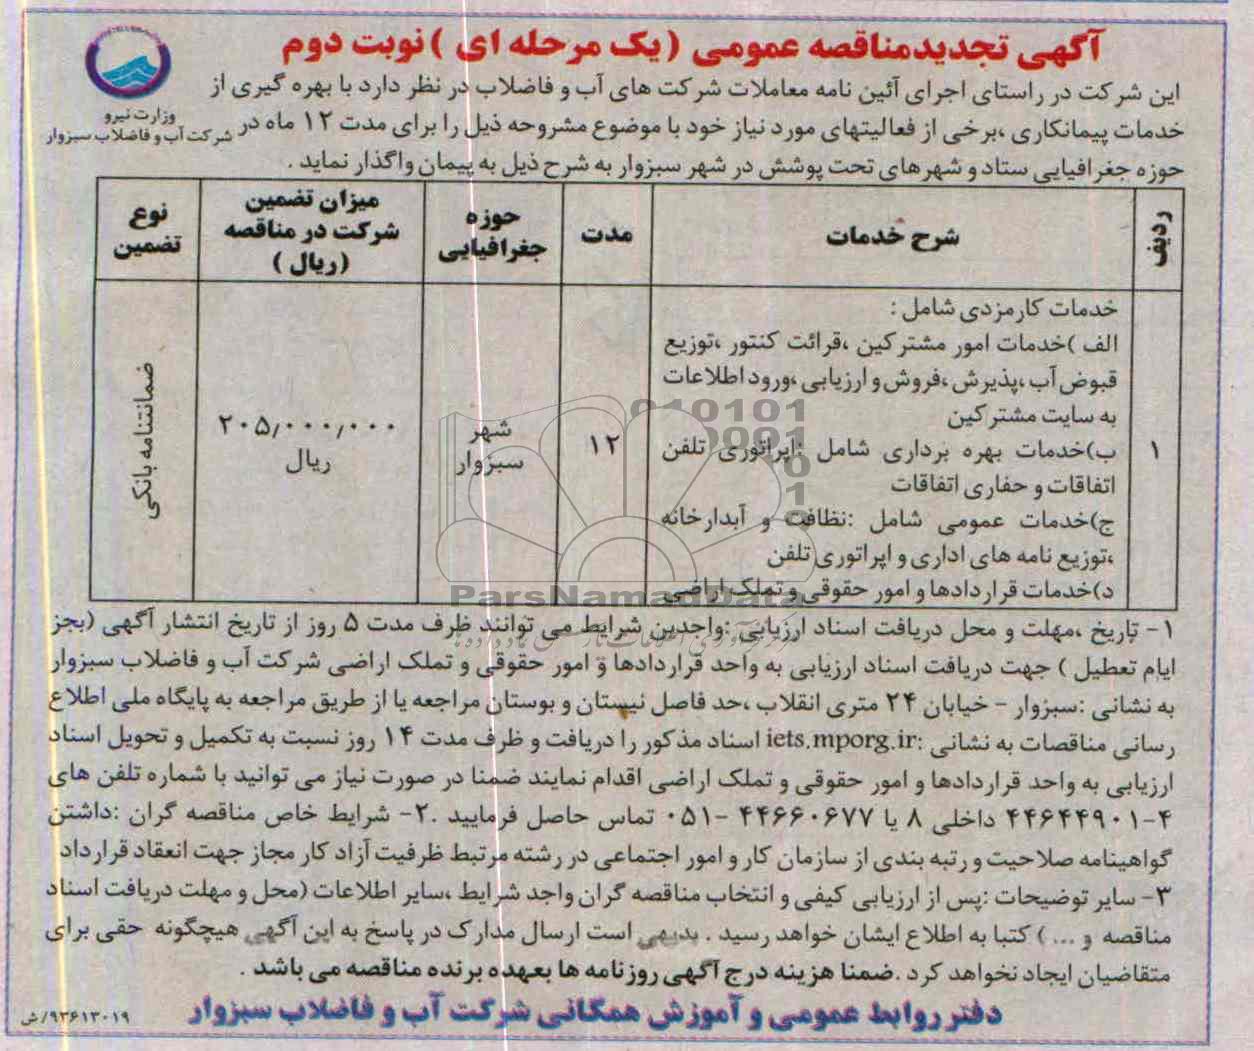 آگهی تجدیدمناقصه عمومی (یک مرحله ای) نوبت دوم
وزارت نیرو
شرکت آب و فاضلاب سبزوار
این شرکت در راستای اجرای آئین نامه معاملات شرکت های آب و فاضلاب در نظر دارد با بهره گیری از
خدمات پیمانکاری ،برخی از فعالیتهای مورد نیاز خود با موضوع مشروحه ذیل را برای مدت ۱۲ ماه در
حوزه جغرافیایی ستاد و شهرهای تحت پوشش در شهر سبزوار به شرح ذیل به پیمان واگذار نماید .
ردیف
شرح خدمات
مدت
حوزه
جغرافیایی
میزان تضمین
شرکت در مناقصه
(ریال)
نوع
تضمین
۱
خدمات کارمزدی شامل :
الف )خدمات امور مشترکین ،قرائت کنتور ،توزیع
قبوض آب ،پذیرش ،فروش و ارزیابی ،ورود اطلاعات
به سایت مشترکین
ب)خدمات بهره برداری شامل :اپراتوری تلفن
اتفاقات و حفاری اتفاقات
ج)خدمات عمومی شامل :نظافت و آبدارخانه
،توزیع نامه های اداری و اپراتوری تلفن
د)خدمات قراردادها و امور حقوقی و تملک اراضی
۱۲
شهر
سبزوار
۲۰۵/۰۰۰/۰۰۰
ریال
ضمانتنامه بانکی
ParsNamadData
۱- تاریخ ،مهلت و محل دریافت اسناد ارزیابی :واجدین شرایط می توانند ظرف مدت ۵ روز از تاریخ انتشار آگهی (بجز
ایام تعطیل ) جهت دریافت اسناد ارزیابی به واحد قراردادها و امور حقوقی و تملک اراضی شرکت آب و فاضلاب سبزوار
به نشانی :سبزوار – خیابان ۲۴ متری انقلاب ،حد فاصل نیستان و بوستان مراجعه یا از طریق مراجعه به پایگاه ملی اطلاع
رسانی مناقصات به نشانی :iets.mporg.ir اسناد مذکور را دریافت و ظرف مدت ۱۴ روز نسبت به تکمیل و تحویل اسناد
ارزیابی به واحد قراردادها و امور حقوقی و تملک اراضی اقدام نمایند ضمنا در صورت نیاز می توانید با شماره تلفن های
۴-۴۴۶۴۴۹۰۱ داخلی ۸ یا ۴۴۶۶۰۶۷۷ -۰۵۱ تماس حاصل فرمایید .۲- شرایط خاص مناقصه گران :داشتن
گواهینامه صلاحیت و رتبه بندی از سازمان کار و امور اجتماعی در رشته مرتبط ظرفیت آزاد کار مجاز جهت انعقاد قرارداد
۳- سایر توضیحات :پس از ارزیابی کیفی و انتخاب مناقصه گران واجد شرایط ،سایر اطلاعات (محل و مهلت دریافت اسناد
مناقصه و ... ) کتبا به اطلاع ایشان خواهد رسید . بدیهی است ارسال مدارک در پاسخ به این آگهی هیچگونه حقی برای
متقاضیان ایجاد نخواهد کرد .ضمنا هزینه درج آگهی روزنامه ها بعهده برنده مناقصه می باشد .
دفتر روابط عمومی و آموزش همگانی شرکت آب و فاضلاب سبزوار
۹۳۶۱۳۰۱۹/ش